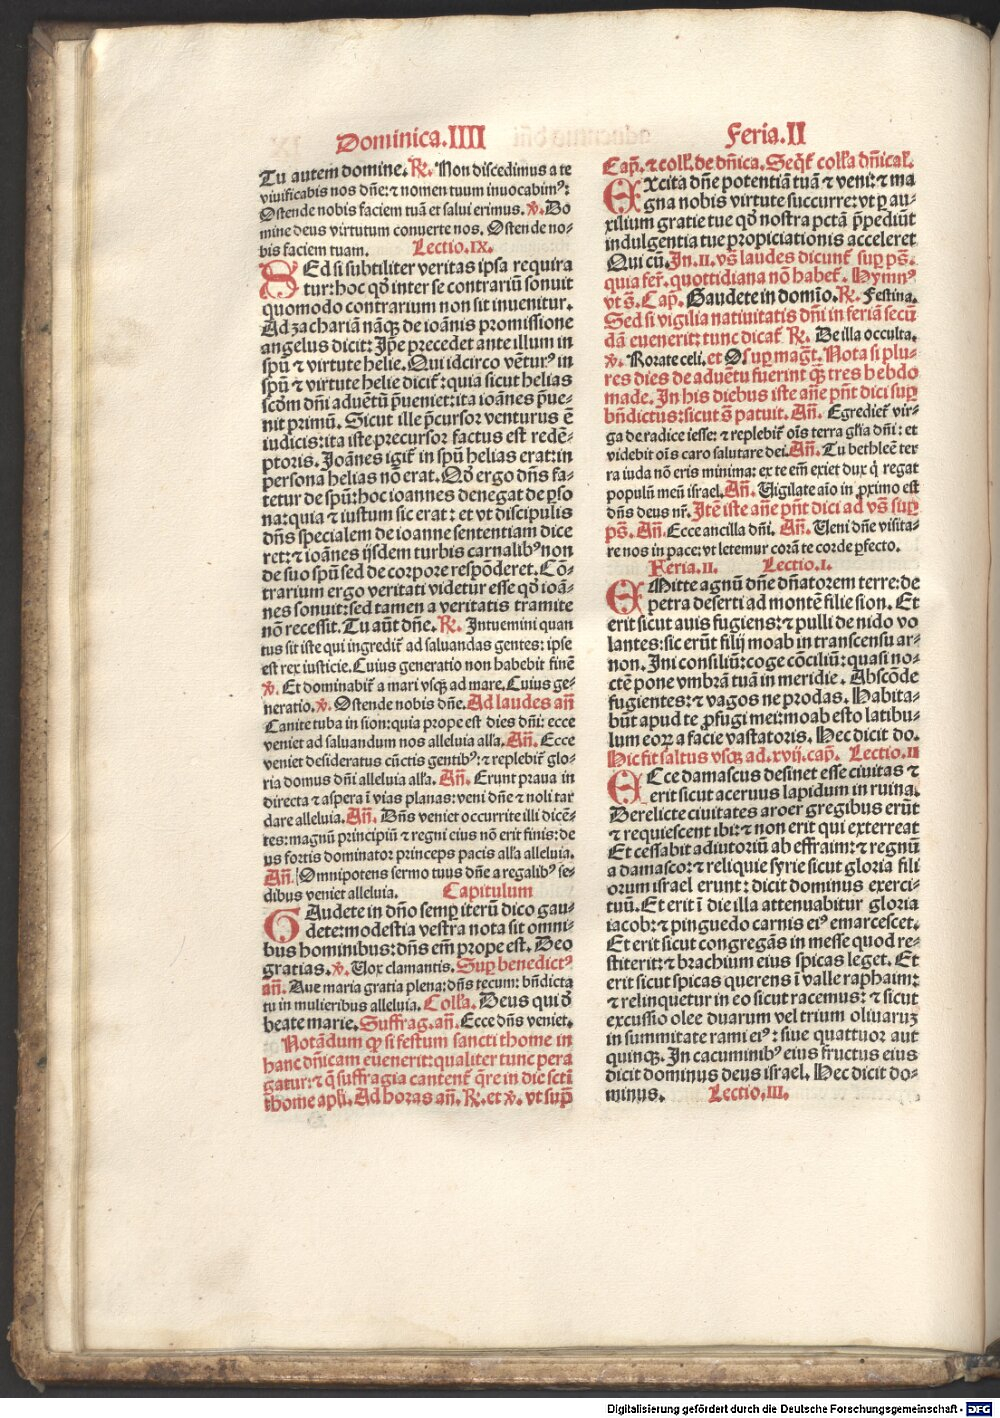 Dominica.IIII
Tu autem domine. ℟. Non discedimus a te
viuificabis nos dñe: ⁊ nomen tuum inuocabimꝰ:
Ostende nobis faciem tuã et salui erimus. ℣. Do
mine deus virtutum conuerte nos. Ostende no⸗
bis faciem tuam. Lectio.IX.
SEd si subtiliter veritas ipsa requira
tur: hoc qď inter se contrariũ sonuit
quomodo contrarium non sit inuenitur.
Ad zachariã nãqꝫ de ioãnis promissione
angelus dicit: Ip̃e precedet ante illum in
spũ ⁊ virtute helie. Qui idcirco vẽturꝰ in
spũ ⁊ virtute helie dicit᷑: quia sicut helias
scďm dñi aduẽtũ p̃ueniet: ita ioãnes p̃ue⸗
nit primũ. Sicut ille p̃cursor venturus ẽ
iudicis: ita iste precursor factus est redẽ⸗
ptoris. Joãnes igit᷑ in spũ helias erat: in
persona helias nõ erat. Qď ergo dñs fa⸗
tetur de spũ: hoc ioannes denegat de ꝑso
na: quia ⁊ iustum sic erat: et vt discipulis
dñs specialem de ioanne sententiam dice
ret: ⁊ ioãnes ijsdem turbis carnalibꝰ non
de suo spũ sed de corpore respõderet. Cõ⸗
trarium ergo veritati videtur esse qď ioã⸗
nes sonuit: sed tamen a veritatis tramite
nõ recessit. Tu aũt dñe. ℟. Intuemini quan
tus sit iste qui ingredit᷑ ad saluandas gentes: ipse
est rex iusticie. Cuius generatio non habebit finẽ
℣. Et dominabit᷑ a mari vsqꝫ ad mare. Cuius ge⸗
neratio. ℣. Ostende nobis dñe. Ad laudes añ
Canite tuba in sion: quia prope est dies dñi: ecce
veniet ad saluandum nos alleluia alla. Añ. Ecce
veniet desideratus cũctis gentibꝰ: ⁊ replebit᷑ glo⸗
ria domus dñi alleluia alla. Añ. Erunt praua in
directa ⁊ aspera ĩ vias planas: veni dñe ⁊ noli tar
dare alleluia. Añ. Dñs veniet occurrite illi dicẽ⸗
tes: magnũ principiũ ⁊ regni eius nõ erit finis: de
us fortis dominator princeps pacis alla alleluia.
Añ. Omnipotens sermo tuus dñe a regalibꝰ se⸗
dibus veniet alleluia. Capitulum
GAudete in dño semꝑ iterũ dico gau⸗
dete: modestia vestra nota sit omni⸗
bus hominibus: dñs em̃ prope est. Deo
gratias. ℣. Vox clamantis. Suꝑ benedictꝰ
añ. Aue maria gratia plena: dñs tecum: bñdicta
tu in mulieribus alleluia. Colla. Deus qui ď
beate marie. Suffrag. añ. Ecce dñs veniet.
Notãdum ꝙ si festum sancti thome in
hanc dñicam euenerit: qualiter tunc pera
gatur: ⁊ q̃ suffragia cantent᷑ q̃re in die scti
thome apli. Ad horas añ. ℟. et ℣. vt suꝑ
Feria.II
Cap̃. ⁊ coll. de dñica. Seqt᷑ colla dñical.
EXcita dñe potentiã tuã ⁊ veni: ⁊ ma
gna nobis virtute succurre: vt ꝑ au⸗
xilium gratie tue qď nostra pctã p̃pediũt
indulgentia tue propiciationis acceleret
Qui cũ. In.II. vs̃ laudes dicunt᷑ suꝑ ps̃.
quia fer̃. quottidiana nõ habet᷑. Hymnꝰ
vt s̃. Cap̃. Gaudete in domĩo. ℟. Festina.
Sed si vigilia natiuitatis dñi in feriã secũ
dã euenerit: tunc dicat᷑ ℟. De illa occulta.
℣. Rorate celi. et O suꝑ mag̃t. Nota si plu⸗
res dies de aduẽtu fuerint q̃ꝫ tres hebdo
made. In his diebus iste añe pñt dici suꝑ
bñdictus: sicut s̃ patuit. Añ. Egrediet᷑ vir⸗
ga de radice iesse: ⁊ replebit᷑ oĩs terra glia dñi: et
videbit oĩs caro salutare dei. Añ. Tu bethleẽ ter
ra iuda nõ eris minima: ex te em̃ exiet dux q̇ regat
populũ meũ israel. Añ. Vigilate aĩo in ꝓximo est
dñs deus nr̃. Itẽ iste añe pñt dici ad vs̃ suꝑ
ps̃. Añ. Ecce ancilla dñi. Añ. Veni dñe visita⸗
re nos in pace: vt letemur corã te corde ꝑfecto.
Feria.II. Lectio.I.
EMitte agnũ dñe dñatorem terre: de
petra deserti ad montẽ filie sion. Et
erit sicut auis fugiens: ⁊ pulli de nido vo
lantes: sic erũt filij moab in transcensu ar⸗
non. Ini consiliũ: coge cõciliũ: quasi no⸗
ctẽ pone vmbrã tuã in meridie. Abscõde
fugientes: ⁊ vagos ne prodas. Habita⸗
bũt apud te ꝓfugi mei: moab esto latibu⸗
lum eoꝝ a facie vastatoris. Hec dicit do.
Hic fit saltus vsqꝫ ad.xvij.cap̃. Lectio.II
ECce damascus desinet esse ciuitas ⁊
erit sicut aceruus lapidum in ruina.
Derelicte ciuitates aroer gregibus erũt
⁊ requiescent ibi: ⁊ non erit qui exterreat
Et cessabit adiutoriũ ab effraim: ⁊ regnũ
a damasco: ⁊ reliquie syrie sicut gloria fili
orum israel erunt: dicit dominus exerci⸗
tuũ. Et erit ĩ die illa attenuabitur gloria
iacob: ⁊ pinguedo carnis eiꝰ emarcescet.
Et erit sicut congregãs in messe quod re⸗
stiterit: ⁊ brachium eius spicas leget. Et
erit sicut spicas querens ĩ valle raphaim:
⁊ relinquetur in eo sicut racemus: ⁊ sicut
excussio olee duarum vel trium oliuaruꝫ
in summitate rami eiꝰ: siue quattuor aut
quinqꝫ. In cacuminibꝰ eius fructus eius
dicit dominus deus israel. Hec dicit do⸗
minus. Lectio.III.
Digitalisierung gefördert durch die Deutsche Forschungsgemeinschaft - DFG